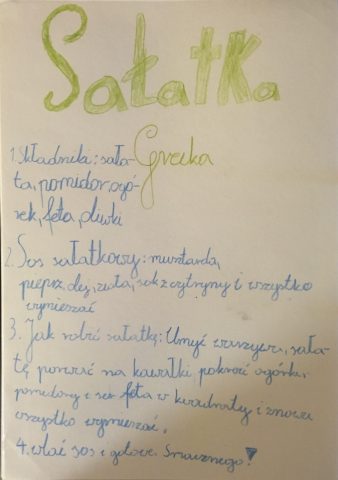 Sałatka
Grecka
1. Składniki: sała-
ta, pomidor, ogó-
rek, feta, oliwki
2. Sos sałatkowy: musztarda,
pieprz, olej, zioła, sok z cytryny i wszystko
wymieszać
3. Jak robić sałatkę: Umyć warzywa, sała-
tę porwać na kawałki pokroić ogórka,
pomidory i ser feta w kwadraty i znowu
wszystko wymieszać.
4. wlać sos i gotowe. Smacznego!